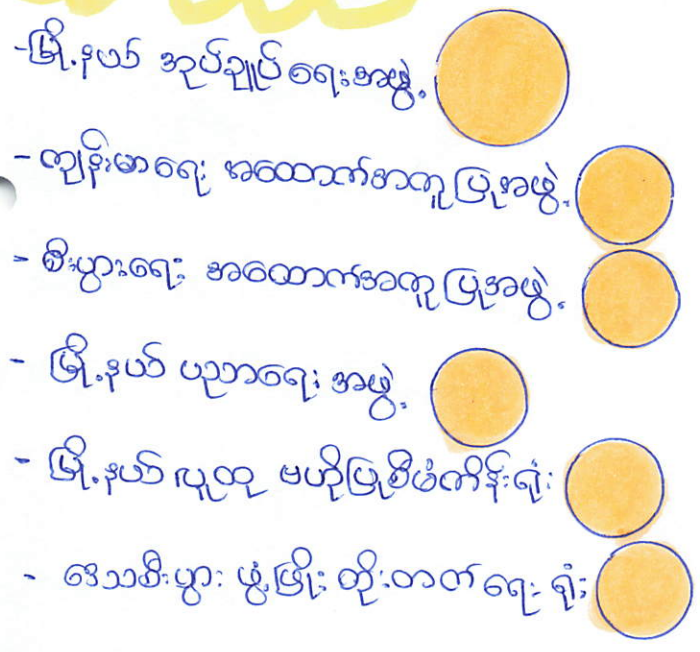 -မြို့နယ် အုပ်ချုပ်ရေးအဖွဲ့
- ကျန်းမာရေး အထောက်အကူပြုအဖွဲ့
- စီးပွားရေး အထောက်အကူပြုအဖွဲ့
- မြို့နယ် ပညာရေး အဖွဲ့
- မြို့နယ် လူထု ဗဟိုပြုစီမံကိန်းရုံး
- ဒေသစီးပွား ဖွံ့ဖြိုး တိုးတက်ရေး ရုံး